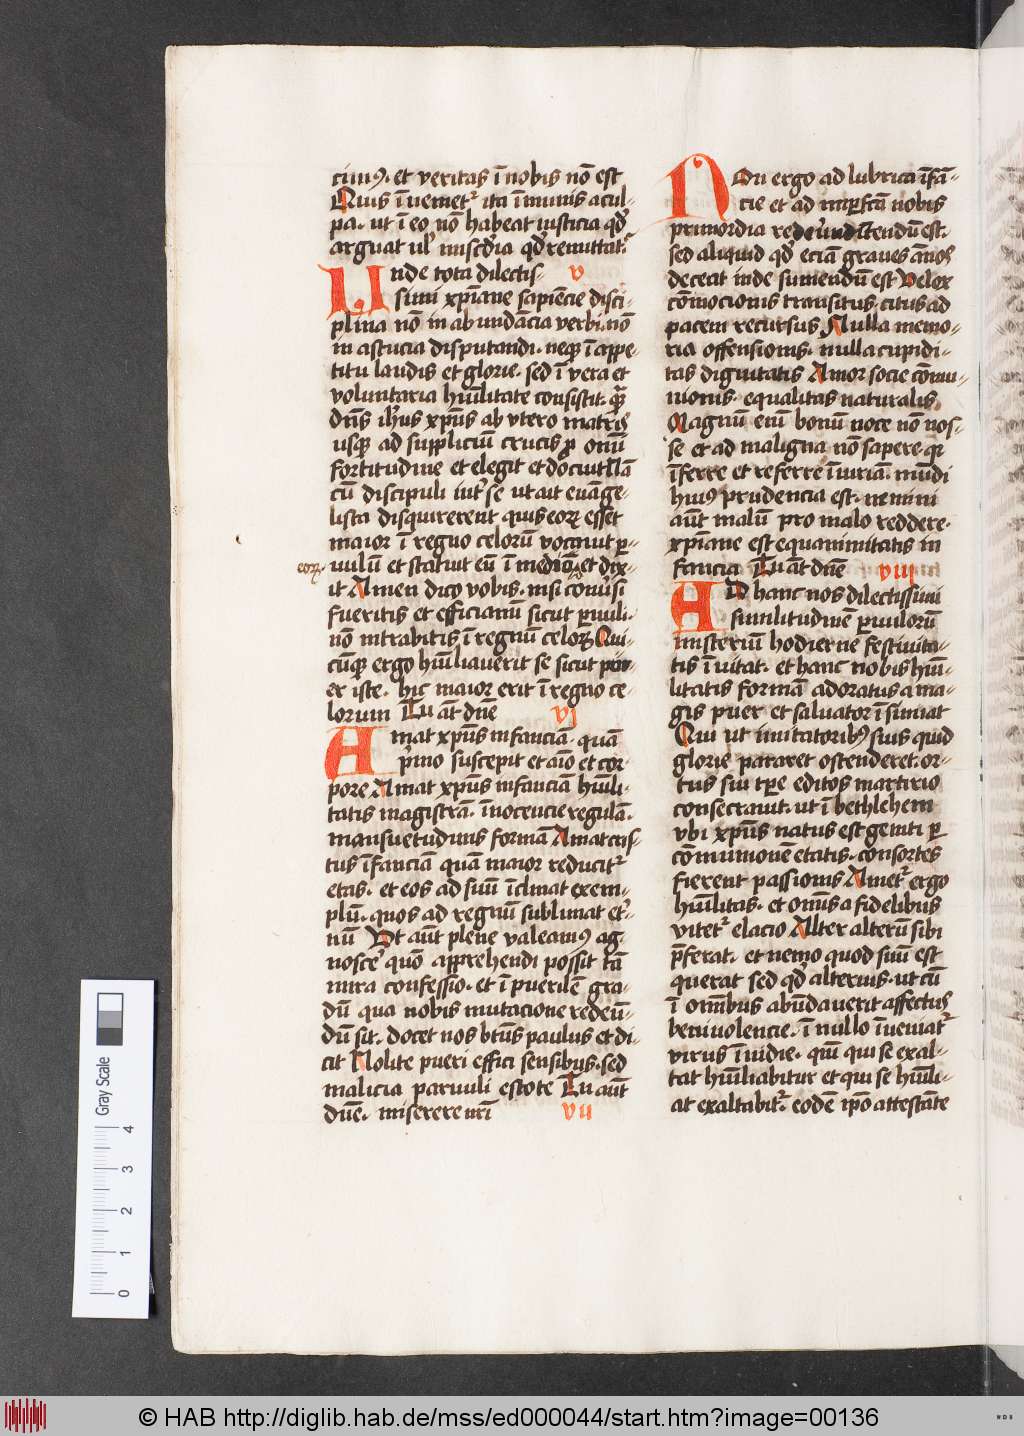 cimꝰ. et veritas ī nobis nō est
Quis īvemet᷑ ita īmunis a cul-
pa. ut ī eo nō habeat iusticia qd̕
arguat ul̕ miscd̕ia qd̕ remittat᷑
Unde tota dilectis- v
simi xp̄iane sapiēcie disci-
plina nō in abundācia verbi. nō
in astucia disputandi. neqꝫ ī appe-
titu laudis et glorie. sed ī vera et
voluntaria hūilitate consistit. quā
dn̄s ih̓us xp̄us ab vtero matris
usqꝫ ad suppliciū crucis ꝓ om̄i
fortitudine et elegit et docuit Nā
cū discipuli int̓ se ut ait evāge-
lista disquirerent quis eoꝝ esset
maior ī regno celorū vocavit ꝑ-
vulū et statuit eū ī medio et dix-
eoꝝ
it Amen dico vobis. nisi cōv̓si
fueritis et efficiamī sicut parvuli.
nō intrabitis ī regnū celoꝝ Qui-
cūqꝫ ergo hūiliaverit se sicut
er iste. hic maior erit ī regno ce-
lorum Tu āt dn̄e vj
Amat xp̄us infanciā. quā
p̓mo suscepit et aīo et cor-
pore Amat xp̄us infanciā hūili-
tatis magistrā. īnocencie regulā.
mansuetudinis formā Amat cris-
tus īfanciā quā maior reducit᷑
etas. et eos ad suū īclinat exem-
plū. quos ad regnū sublimat et̓-
nū Ut aūt plene valeamꝰ ag-
nosce̓ quō apprehendi possit tā
mira confessio. et ī puerilē gra-
dū qua nobis mutacione redeū-
dū sit. docet nos bt̄us paulus et di-
cit Nolite pueri effici sensibus. sed
malicia parvuli estote Tu aūt
dn̄e. miserere nr̄i vii
Non ergo ad lubrica īfā-
cie et ad imꝑfcā nobis
primordia redeundū est.
sed aliquid qd̕ eciā graves ānos
dececit inde sumendū est Velox
cōmocionis transitus. citus ad
pacem recursus Nulla memo-
ria offensionis. nulla cupidi-
tas dignitatis Amor socie cōmu-
nionis. equalitas naturalis.
Magnū enī bonū noce nō nos-
se et ad maligna nō sapere qꝛ
īferre et referre īiuriā. mūdi
huiꝰ prudencia est. nemini
aūt malū pro malo reddere.
xp̄iane est equanimitatis in
fancia Tu āt dn̄e viij
Ad hanc nos dilectissimi
similitudinē ꝑvulorū
misteriū hodierne festivita-
tis īvitat. et hanc nobis hūi-
litatis formā adoratus a ma-
gis puer et saluator īsinuat
Qui ut imitatoribꝰ suis quid
glorie pararet ostenderet. or-
tus sui tp̄e editos martirio
consecravit. ut ī bethlehem
vbi xp̄us natus est geniti ꝑ
cōmunionē etatis. consortes
fierent passionis Amet᷑ ergo
hūilitas. et om̄is a fidelibus
vitet᷑ elacio Alter alterū sibi
p̄ferat. et nemo quod suū est
querat sed qd̕ alterius. ut cū
ī om̄ibus abūdaverit affectus
benivolencie. ī nullo īveniat᷑
virus īvidie. qm̄ qui se exal-
tat hūiliabitur et qui se hūili-
at exaltabit᷑. eodē ip̄o attestāte
0 1 2 3 4 Gray Scale
© HAB http://diglib.hab.de/mss/ed000044/start.htm?image=00136